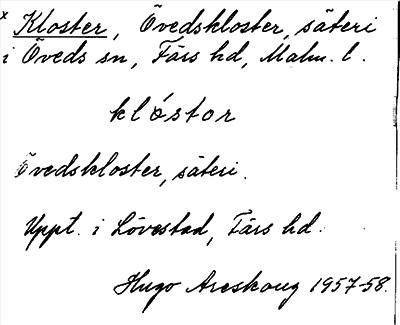 x Kloster, Övedskloster, säteri
i Öveds sn, Färs hd, Malm. l.
klóstor
Övedskloster, säteri.
Uppt. i Lövestad, Färs hd.
Hugo Areskoug 1957-58.